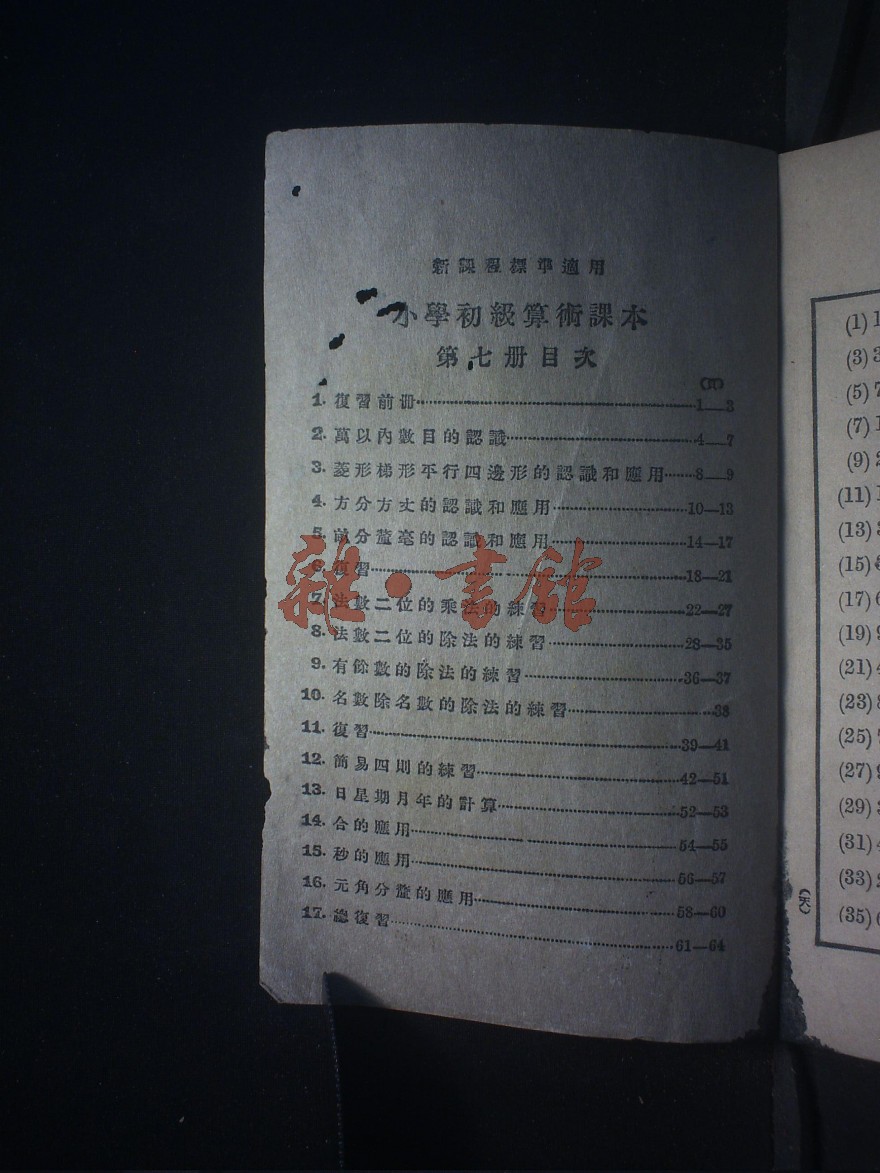 新課程標準適用
小學初級算術課本
第七册目次
(頁)
1. 復習前册 1—3
2. 萬以內數目的認識 4—7
3. 菱形梯形平行四邊形的認識和應用 8—9
4. 方分方丈的認識和應用 10—13
5. 分釐毫的認識和應用 14—17
6. 復習 18—21
7. 法數二位的乘法的練習 22—27
8. 法數二位的除法的練習 28—35
9. 有餘數的除法的練習 36—37
10. 名數除名數的除法的練習 38
11. 復習 39—41
12. 簡易四則的練習 42—51
13. 日星期月年的計算 52—53
14. 合的應用 54—55
15. 秒的應用 56—57
16. 元角分釐的應用 58—60
17. 總復習 61—64
雜·書館
(1) 1
(3) 3
(5) 7
(7) 1
(9) 2
(11) 1
(13)
(15)
(17) 6
(19) 9
(21) 4
(23) 8
(25)
(27) 9
(29) 3
(31) 4
(33) 2
(35) 6